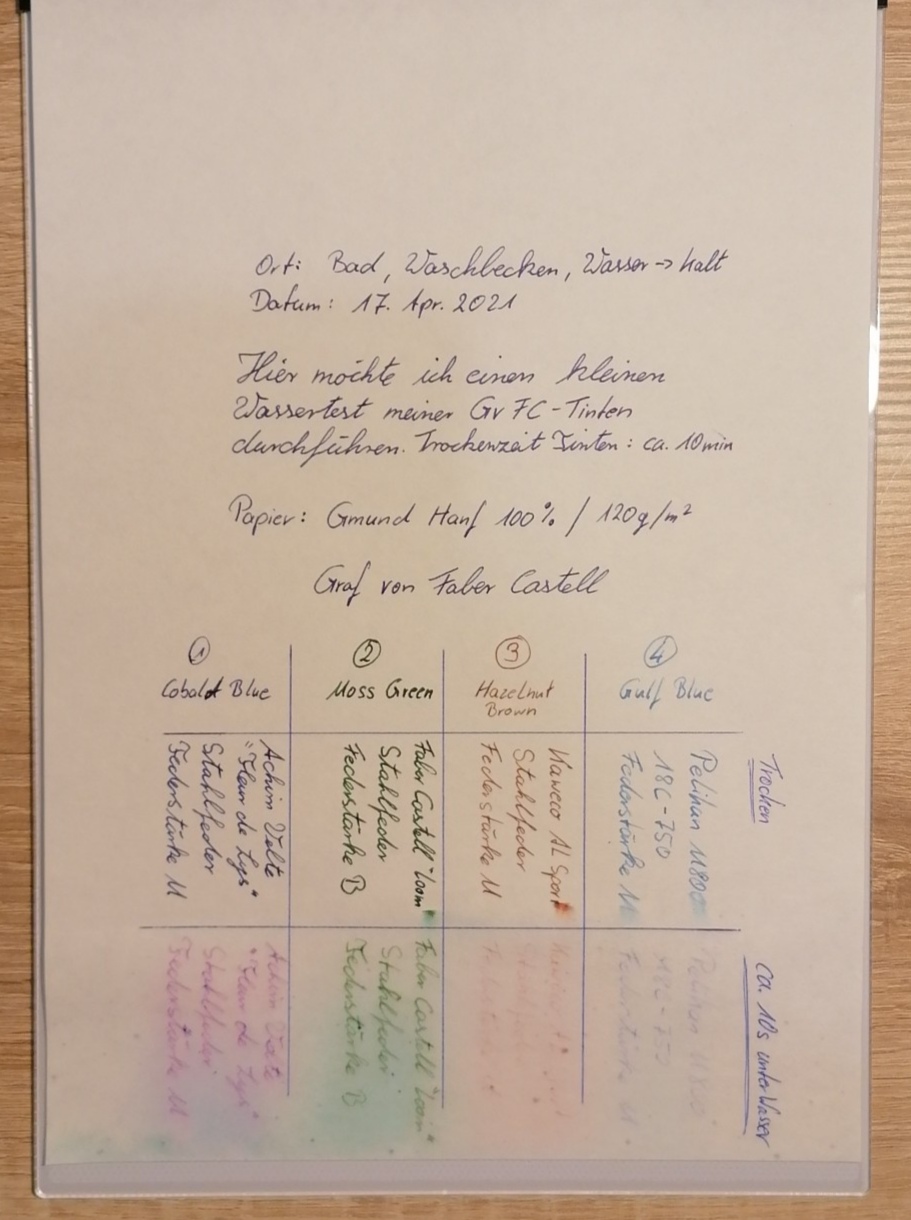 Ort: Bad, Waschbecken, Wasser → kalt
Datum: 17. Apr. 2021
Hier möchte ich einen kleinen
Wassertest meiner GvFC-Tinten
durchführen. Trockenzeit Tinten: ca. 10min
Papier: Gmund Hanf 100% / 120g/m²
Graf von Faber Castell
1
Cobalt Blue
2
Moss Green
3
Hazelnut
Brown
4
Gulf Blue
Achim Velte
"Fleur de Lys"
Stahlfeder
Federstärke M
Faber Castell "Loom"
Stahlfeder
Federstärke B
Kaweco AL Sport
Stahlfeder
Federstärke M
Pelikan M800
18C-750
Federstärke M
Trocken
Achim Velte
"Fleur de Lys"
Stahlfeder
Federstärke M
Faber Castell "Loom"
Stahlfeder
Federstärke B
Stahlfeder
Pelikan M800
18C-750
Federstärke M
ca. 10s unter Wasser